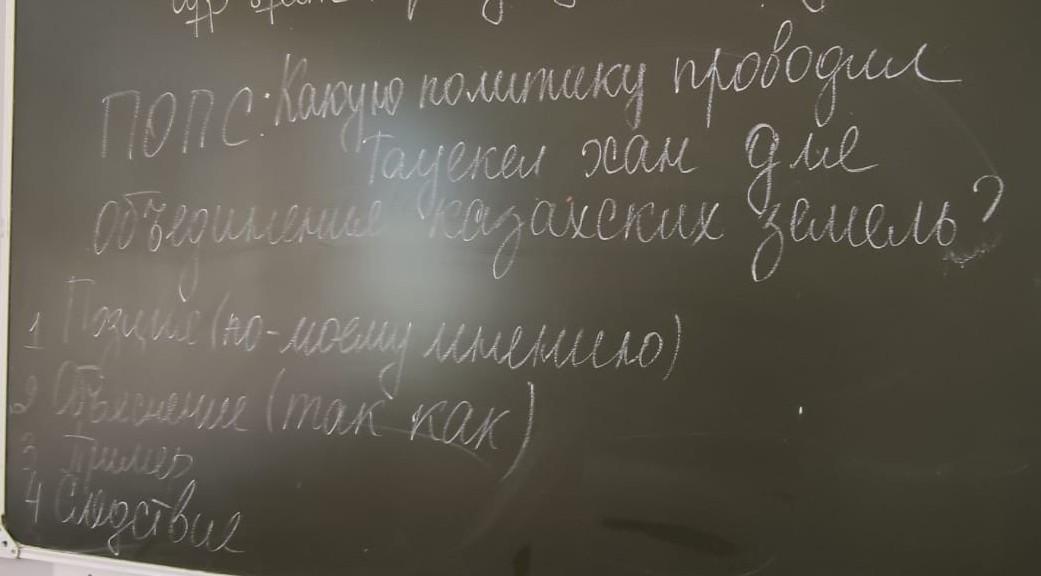 ПОПС: Какую политику проводил
Тауекел хан для
объединения казахских земель?
1 Позиция (по-моему мнению)
2 Объяснение (так как)
3 Пример
4 Следствие